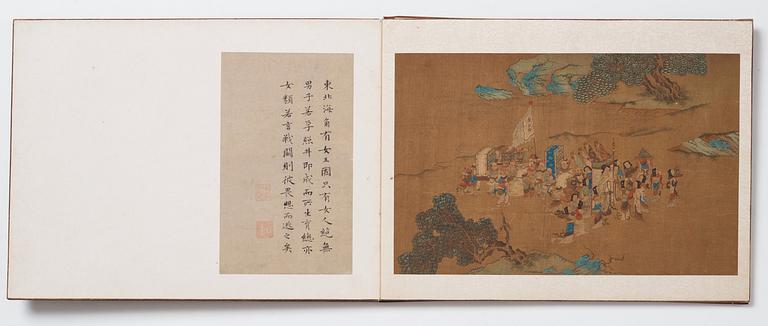 東北海角有女王國只有女人絕無
男子若孕照井即成而所生育總亦
女類若言戰鬪則彼畏想而逃之矣